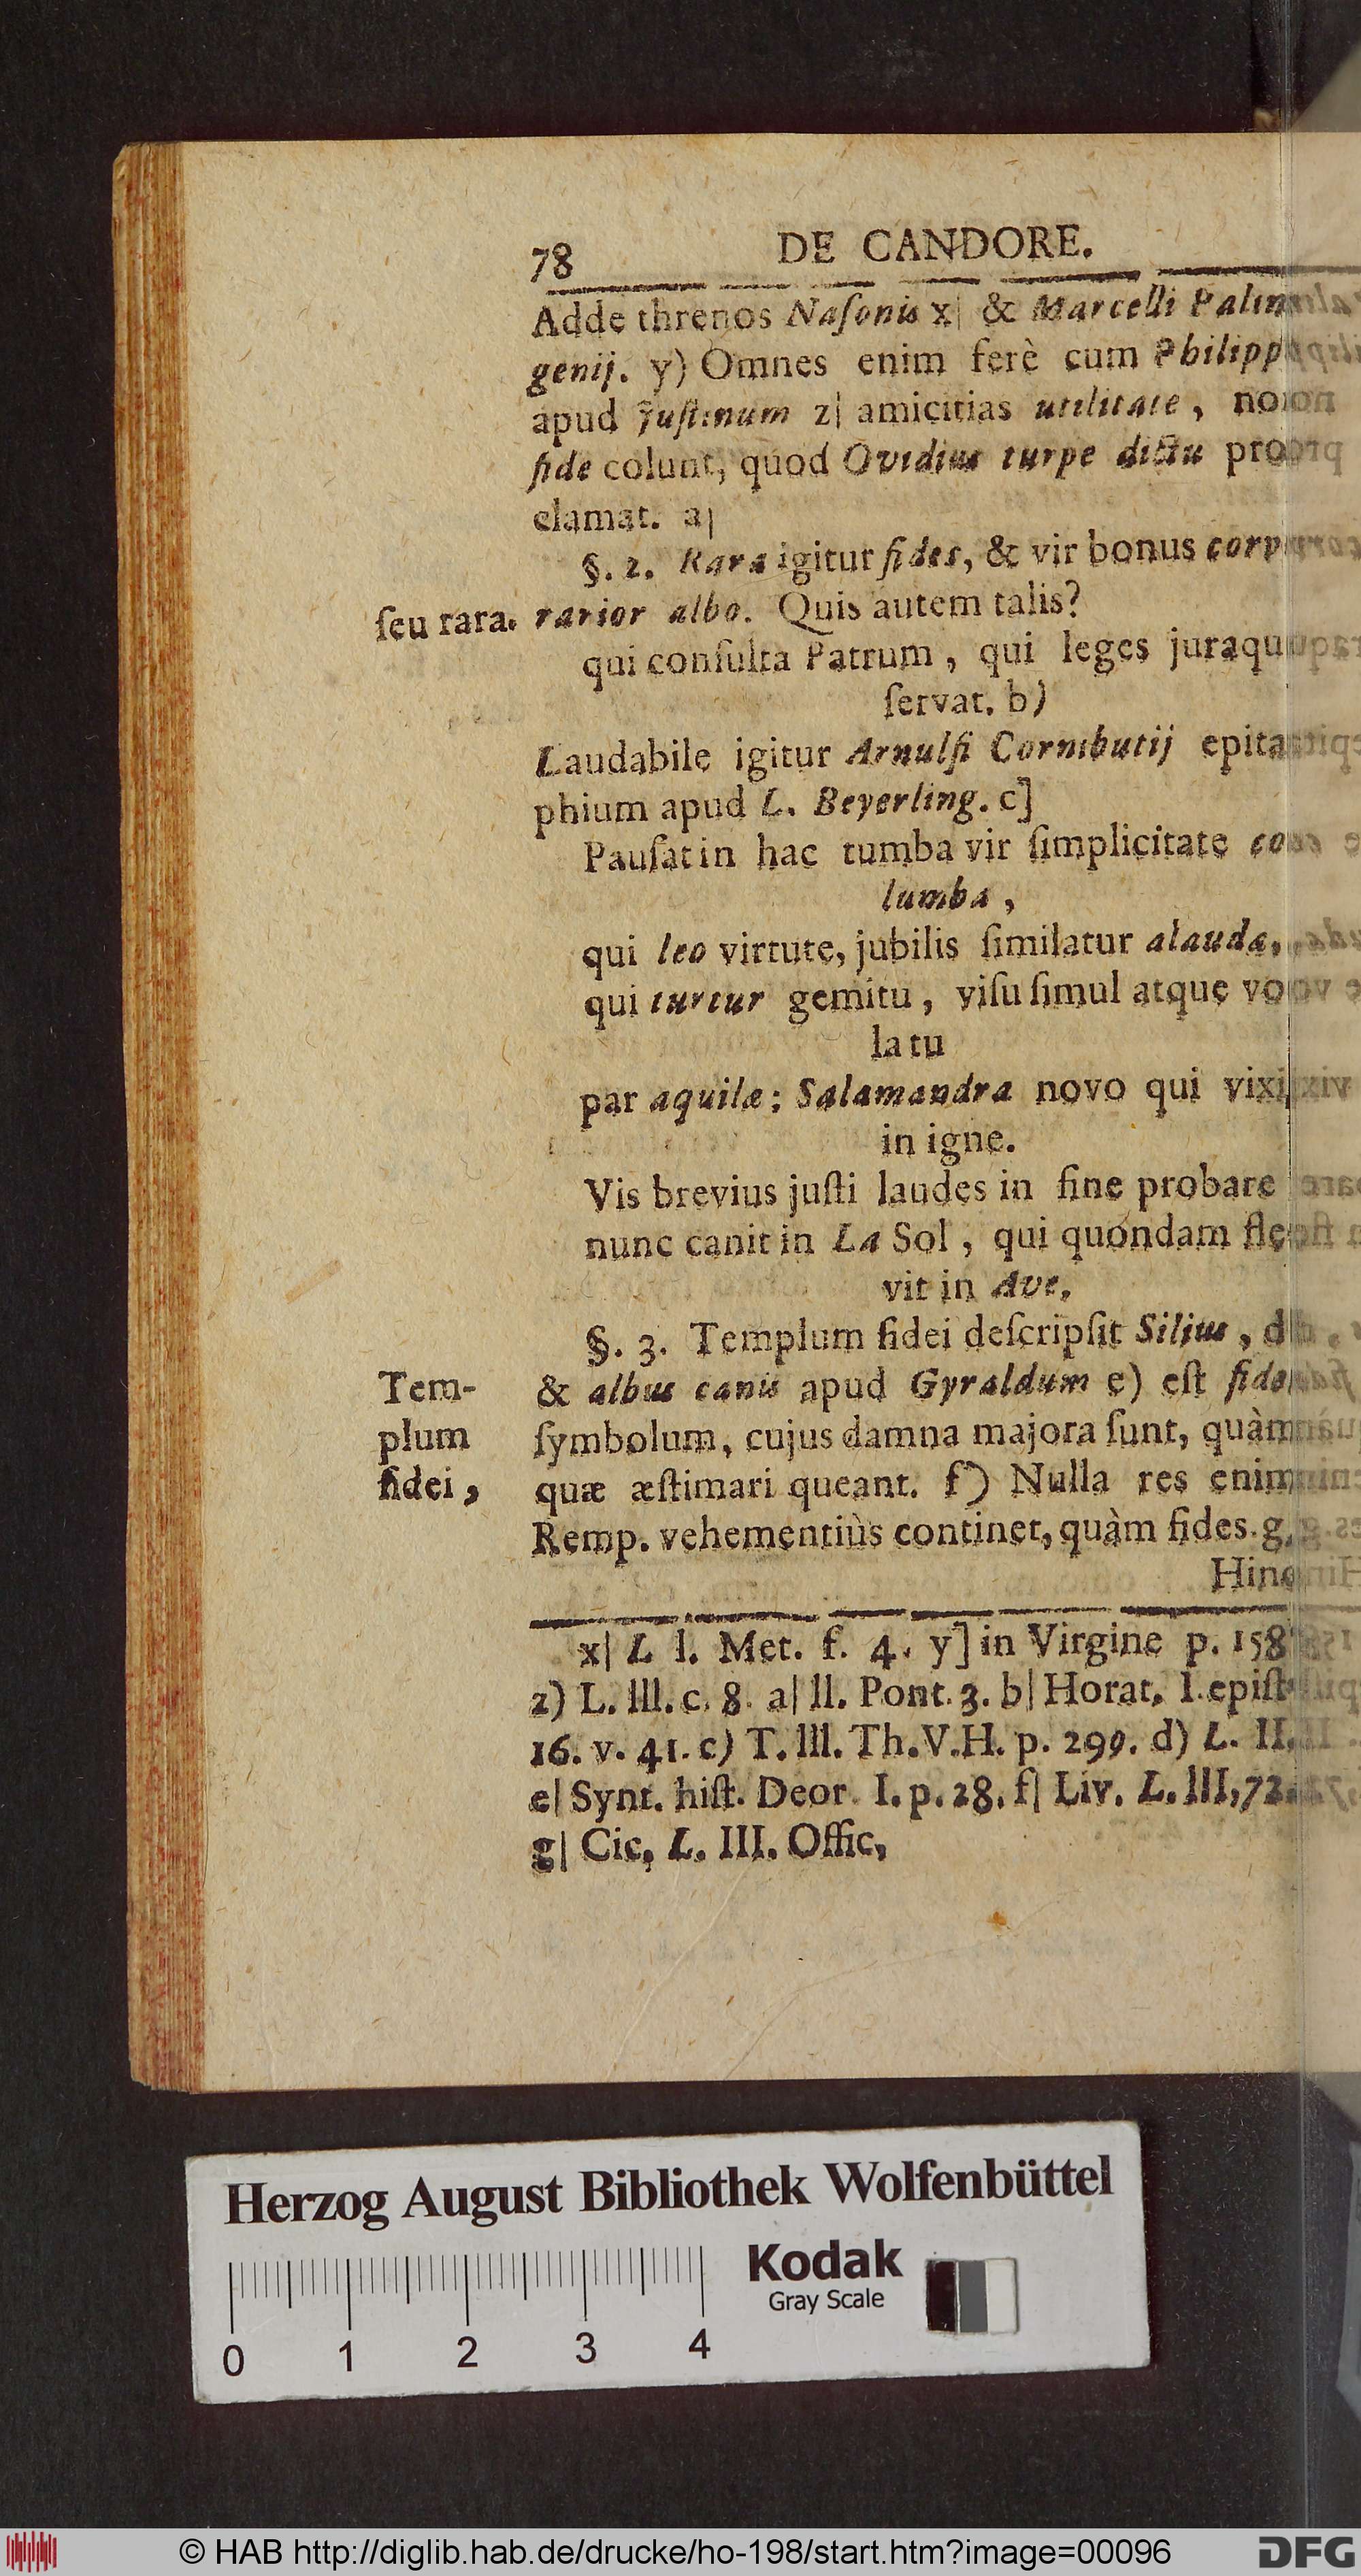 78 DE CANDORE.
Adde threnos Naſonis x| & Marcelli Palin
genij. y) Omnes enim ferè cum Philippo
apud Juſtinum z| amicitias utilitate, non
fide colunt, quod Ovidius turpe dictu pro
clamat. a|
§. 2. Rara igitur fides, & vir bonus corvo
ſeu rara. rarior albo. Quis autem talis?
qui conſulta Patrum, qui leges juraqu
ſervat. b)
Laudabile igitur Arnulfi Cornibutij epita
phium apud L. Beyerling. c]
Pauſat in hac tumba vir ſimplicitate co
lumba,
qui leo virtute, jubilis ſimilatur alauda,
qui turtur gemitu, viſu ſimul atque vo
latu
par aquilæ; Salamandra novo qui vixi
in igne.
Vis brevius juſti laudes in fine probare
nunc canit in La Sol, qui quondam fle
vit in Ave.
§. 3. Templum fidei deſcripſit Silius, d
Tem- & albus canis apud Gyraldum e) eſt fide
plum ſymbolum, cujus damna majora ſunt, quàm
fidei, quæ æſtimari queant. f) Nulla res enim
Remp. vehementiùs continet, quàm fides. g
Hinc
x| L l. Met. f. 4. y] in Virgine p. 158
z) L. lll. c. 8. a| ll. Pont. 3. b| Horat. I. epiſt
16. v. 41. c) T. lll. Th. V. H. p. 299. d) L. II.
e| Synt. hiſt. Deor. I. p. 28. f| Liv. L. III, 72.
g| Cic, L. III. Offic,
Herzog August Bibliothek Wolfenbüttel
Kodak
Gray Scale
0 1 2 3 4
© HAB http://diglib.hab.de/drucke/ho-198/start.htm?image=00096
DFG